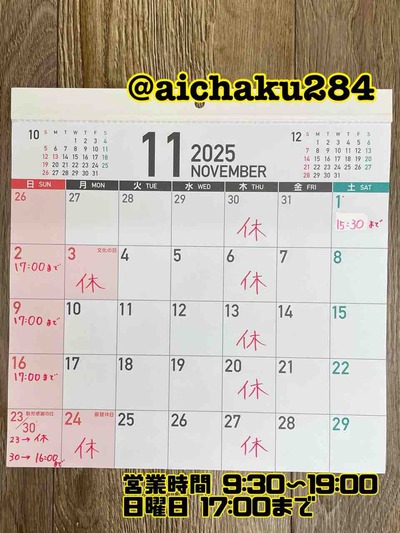 @aichaku284
10 S M T W T F S
1 2 3 4
5 6 7 8 9 10 11
12 13 14 15 16 17 18
19 20 21 22 23 24 25
26 27 28 29 30 31
11 2025 NOVEMBER
12 S M T W T F S
1 2 3 4 5 6
7 8 9 10 11 12 13
14 15 16 17 18 19 20
21 22 23 24 25 26 27
28 29 30 31
日 SUN 月 MON 火 TUE 水 WED 木 THU 金 FRI 土 SAT
26 27 28 29 30 31 1
休 15:30まで
2 3 文化の日 4 5 6 7 8
17:00まで 休 休
9 10 11 12 13 14 15
17:00まで 休
16 17 18 19 20 21 22
17:00まで 休
23/30 勤労感謝の日 24 振替休日 25 26 27 28 29
23→休 休 休
30→16:00まで
営業時間 9:30〜19:00
日曜日 17:00まで